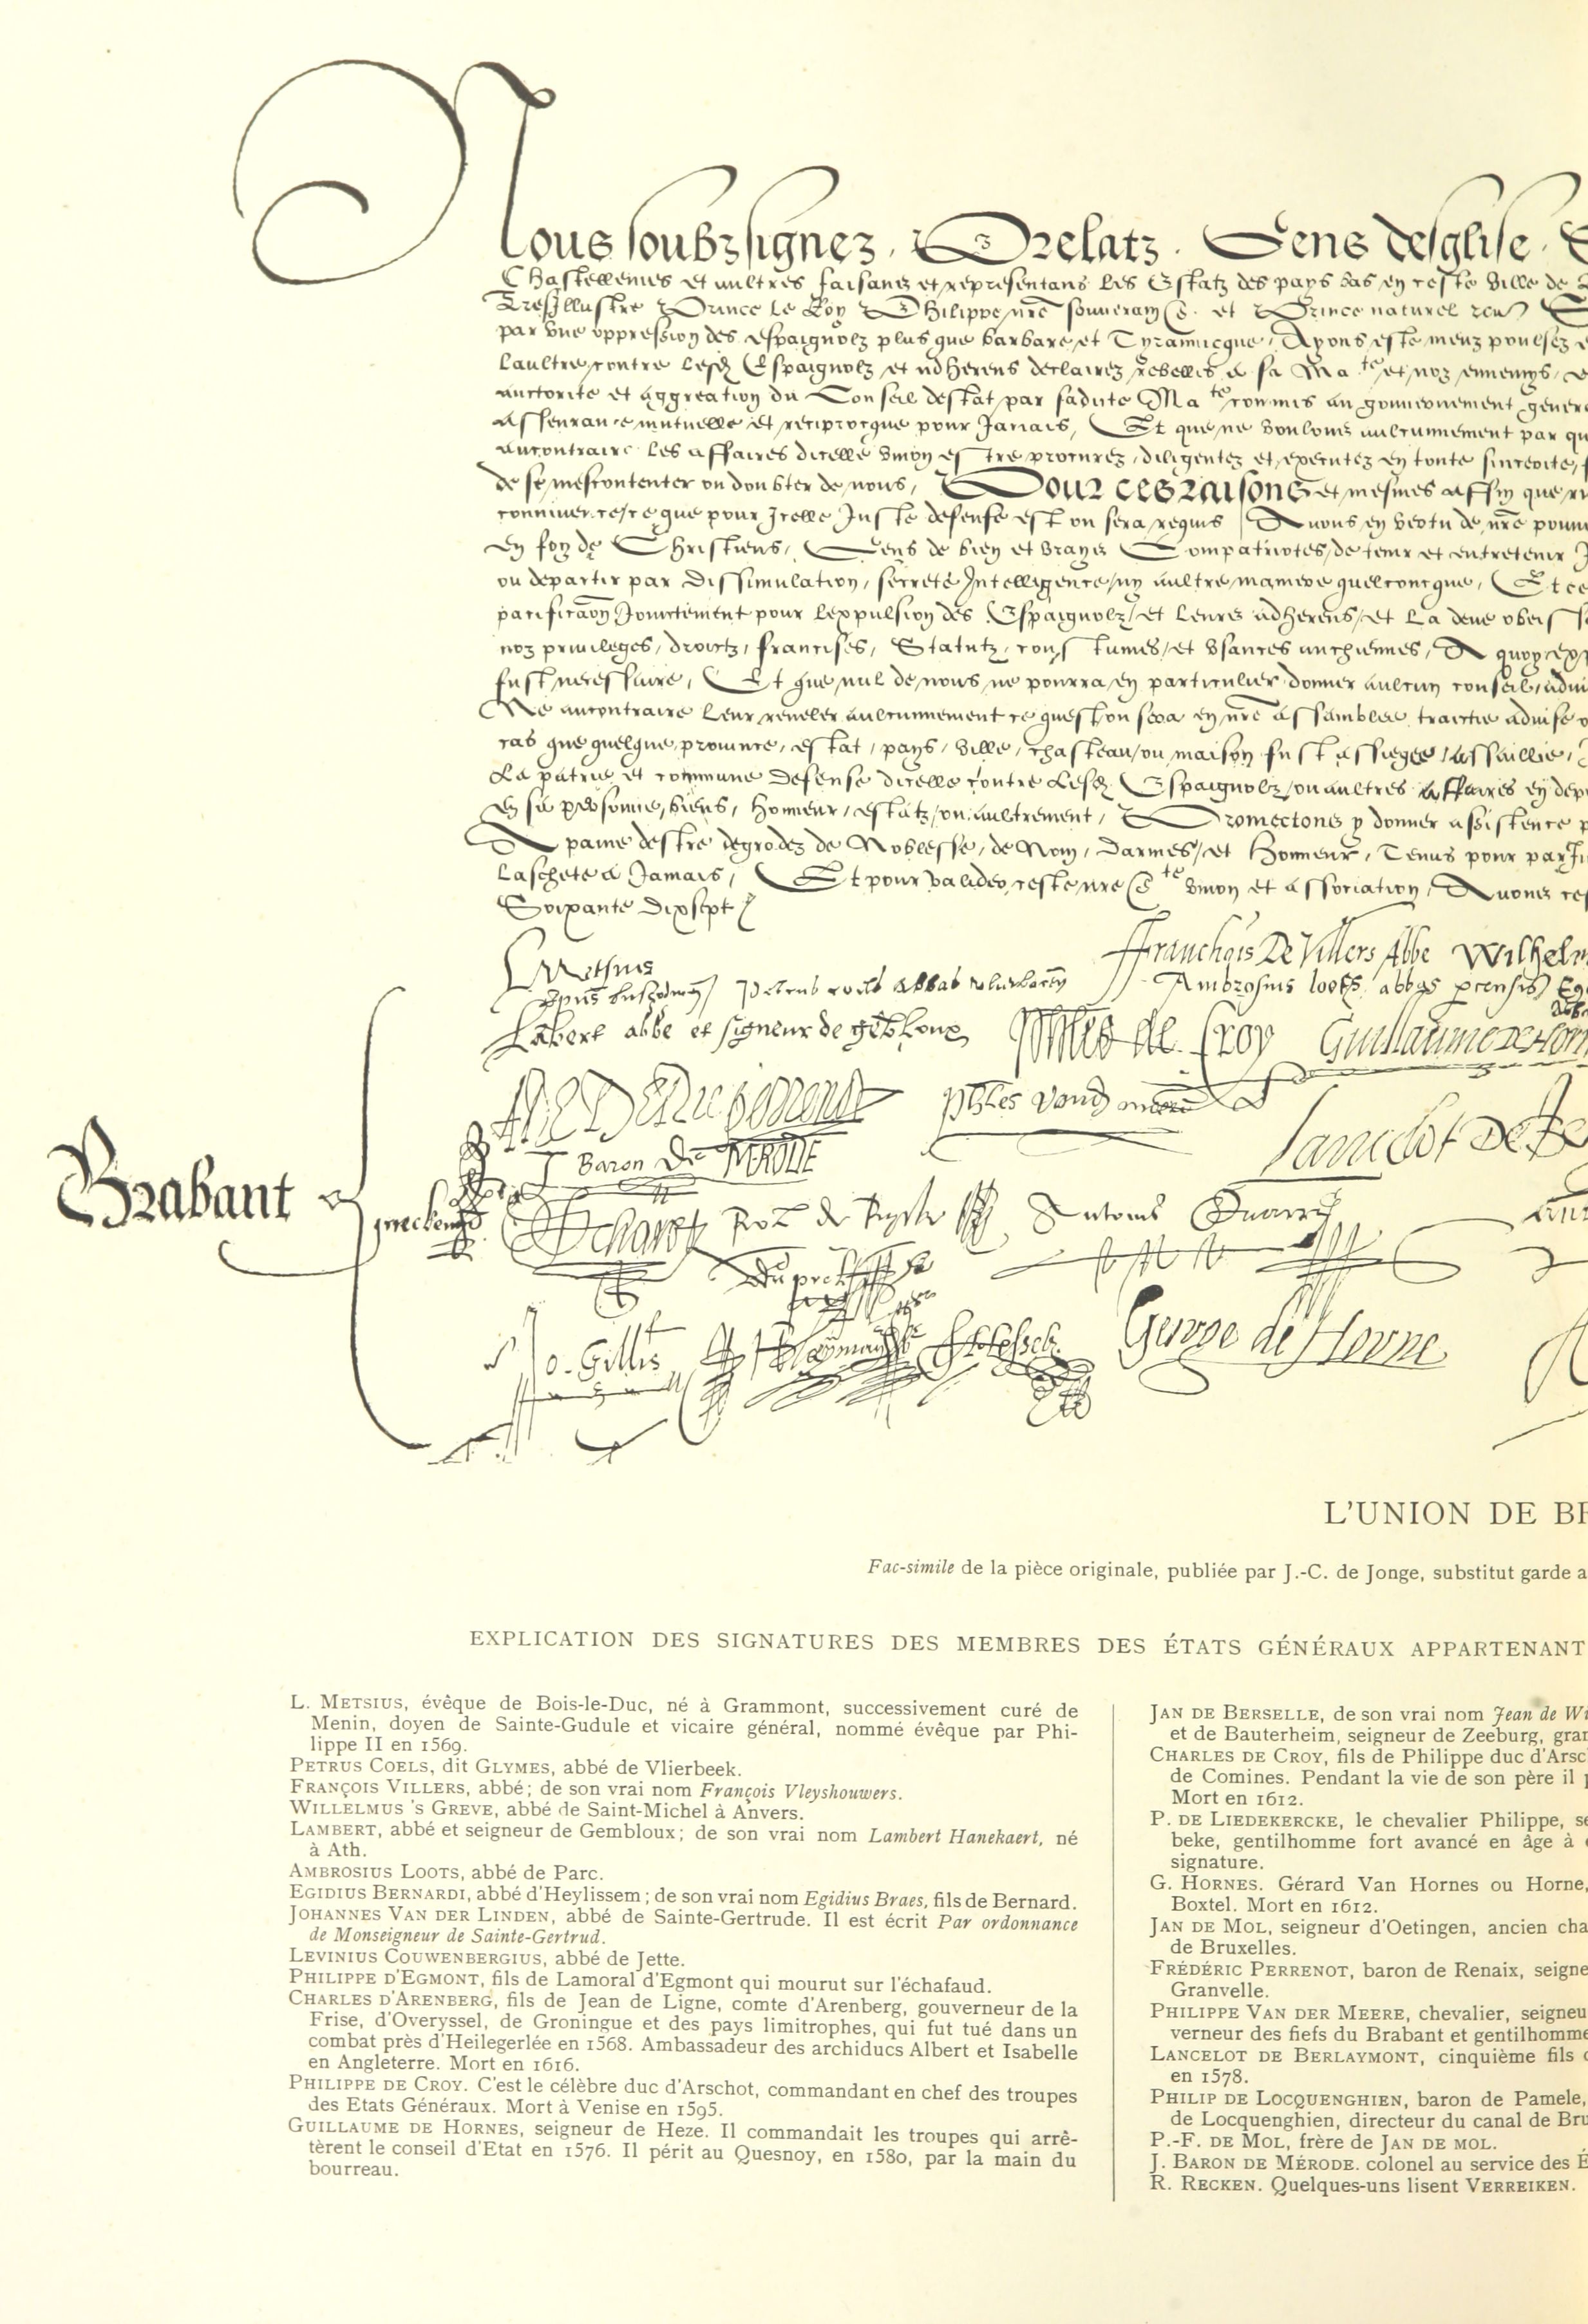 Nous soubzsignez . Prelatz . Gens desglise .
Chastellenies et aultres faisans et representans les Estatz des pays bas en ceste ville de
Tresillustre Prince le Roy Philippe nre souverain et Prince naturel
par vne oppression des espaignolz plus que barbare et Tyrannicque, Ayons este meuz poulsez
laultre contre lesd Espaignolz et adherens declairez rebelles a sa Ma te et noz ennemys,
auctorite et aggreation du Conseil destat par sadite Ma te commis au gouvernement
asseurance mutuelle et reciprocque pour Jamais, Et que ne voulons aulcunnement par
aucontraire les affaires dicelle vnion estre procurez, diligentez et executez en toute
de se mescontenter ou doubter de nous, Pour ces raisons et mesmes affin que
conniver ce que pour Icelle Juste defense est ou sera requis Auons en vertu de nre
en foy de Christiens, Gens de bien et vrays Compatriotes, de tenir et entretenir
ou departir par dissimulation, secrete Intelligence, ny aultre maniere quelconcque, Et
pacification Joinctement pour lexpulsion des Espaignolz, et leurs adherens, et la deue
noz privileges, droictz, franchises, Statutz, coustumes, et vsances anchiennes, A quoy
fust necessaire, Et que nul de nous ne pourra en particulier donner aulcun conseil,
Ne aucontraire leur reveler aulcunnement ce quest ou sera en nre assamblee traictie advise
cas que quelque province, estat, pays, ville, chasteau, ou maison fust assiegee, assaillie,
La patrie et commune defense dicelle contre lesd Espaignolz, ou aultres affaires en
en sa personne, biens, honneur, estatz, ou aultrement, Promectons y donner assistence
A paine destre degradez de Noblesse, de Nom, darmes, et honneur, Tenus pour
Laschete a Jamais, Et pour valider ceste nre vnion et association, Auons
Soixante dixsept
L Metsius
Ffranchois De Villers Abbe
Ambrosius loots abbas
Labert abbe et signeur de
de Croy
Brabant
Baron De MERODE
Antonis
Jo. Gillis
de Horne
L'UNION DE BR
Fac-simile de la pièce originale, publiée par J.-C. de Jonge, substitut garde a
EXPLICATION DES SIGNATURES DES MEMBRES DES ÉTATS GÉNÉRAUX APPARTENANT
L. METSIUS, évêque de Bois-le-Duc, né à Grammont, successivement curé de
Menin, doyen de Sainte-Gudule et vicaire général, nommé évêque par Phi-
lippe II en 1569.
PETRUS COELS, dit GLYMES, abbé de Vlierbeek.
FRANÇOIS VILLERS, abbé; de son vrai nom François Vleyshouwers.
WILLELMUS 'S GREVE, abbé de Saint-Michel à Anvers.
LAMBERT, abbé et seigneur de Gembloux; de son vrai nom Lambert Hanekaert, né
à Ath.
AMBROSIUS LOOTS, abbé de Parc.
EGIDIUS BERNARDI, abbé d'Heylissem; de son vrai nom Egidius Braes, fils de Bernard.
JOHANNES VAN DER LINDEN, abbé de Sainte-Gertrude. Il est écrit Par ordonnance
de Monseigneur de Sainte-Gertrud.
LEVINIUS COUWENBERGIUS, abbé de Jette.
PHILIPPE D'EGMONT, fils de Lamoral d'Egmont qui mourut sur l'échafaud.
CHARLES D'ARENBERG, fils de Jean de Ligne, comte d'Arenberg, gouverneur de la
Frise, d'Overyssel, de Groningue et des pays limitrophes, qui fut tué dans un
combat près d'Heilegerlée en 1568. Ambassadeur des archiducs Albert et Isabelle
en Angleterre. Mort en 1616.
PHILIPPE DE CROY. C'est le célèbre duc d'Arschot, commandant en chef des troupes
des Etats Généraux. Mort à Venise en 1595.
GUILLAUME DE HORNES, seigneur de Heze. Il commandait les troupes qui arrê-
tèrent le conseil d'Etat en 1576. Il périt au Quesnoy, en 1580, par la main du
bourreau.
JAN DE BERSELLE, de son vrai nom Jean de Wi
et de Bauterheim, seigneur de Zeeburg, gran
CHARLES DE CROY, fils de Philippe duc d'Arsc
de Comines. Pendant la vie de son père il p
Mort en 1612.
P. DE LIEDEKERCKE, le chevalier Philippe, se
beke, gentilhomme fort avancé en âge à
signature.
G. HORNES. Gérard Van Hornes ou Horne,
Boxtel. Mort en 1612.
JAN DE MOL, seigneur d'Oetingen, ancien cha
de Bruxelles.
FRÉDÉRIC PERRENOT, baron de Renaix, seigne
Granvelle.
PHILIPPE VAN DER MEERE, chevalier, seigneu
verneur des fiefs du Brabant et gentilhomme
LANCELOT DE BERLAYMONT, cinquième fils
en 1578.
PHILIP DE LOCQUENGHIEN, baron de Pamele,
de Locquenghien, directeur du canal de Bru
P.-F. DE MOL, frère de JAN DE MOL.
J. BARON DE MÉRODE. colonel au service des É
R. RECKEN. Quelques-uns lisent VERREIKEN.